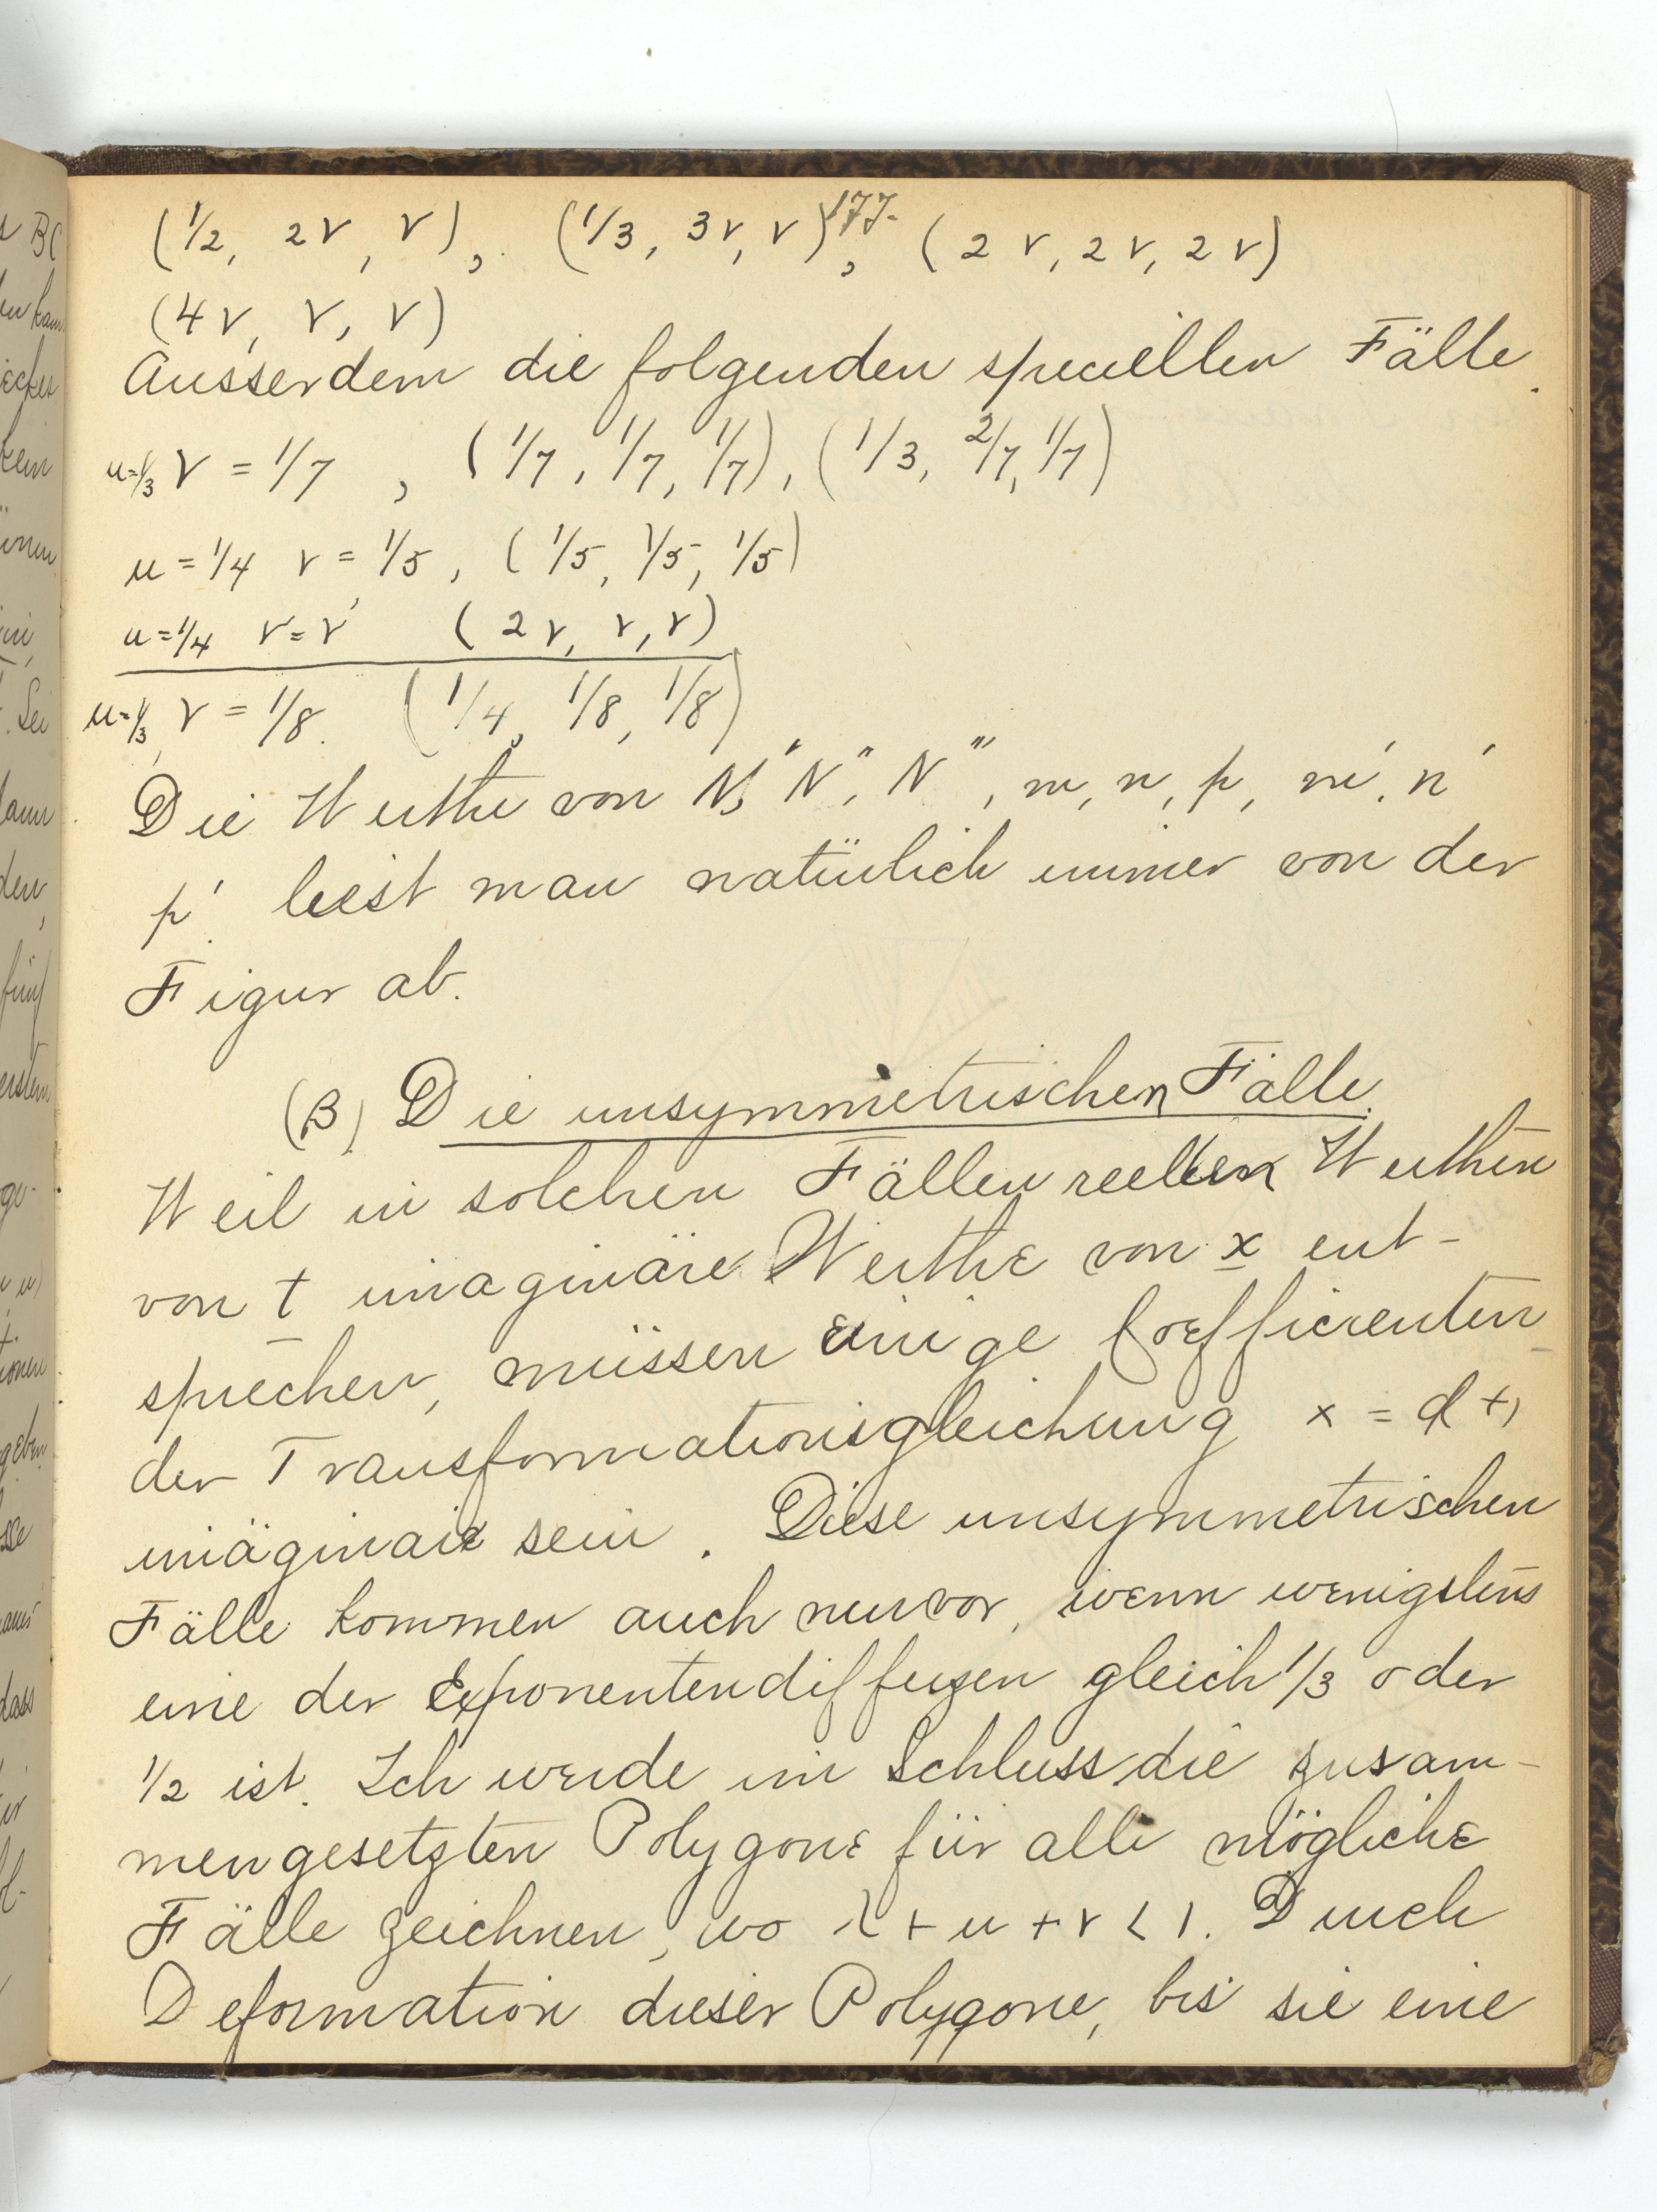 177.
(1/2, 2ν, ν), (1/3, 3ν, ν), (2ν, 2ν, 2ν)
(4ν, ν, ν)
Ausserdem die folgenden speciellen Fälle.
μ=1/3 ν = 1/7, (1/7, 1/7, 1/7), (1/3, 2/7, 1/7)
μ = 1/4 ν = 1/5, (1/5, 1/5, 1/5)
μ = 1/4 ν = ν (2ν, ν, ν)
μ=1/3, ν = 1/8. (1/4, 1/8, 1/8)
Die Werthe von N', N'', N''', m, n, p, m', n'
p' liest man natürlich immer von der
Figur ab.
(β) Die unsymmetrischen Fälle.
Weil in solchen Fällen reellen Werthen
von t imaginäre Werthe von x ent-
sprechen, müssen einige Coefficienten
der Transformationsgleichung x = φ t,
imäginair sein. Diese unsymmetrischen
Fälle kommen auch nur vor, wenn wenigstens
eine der Exponentendifferenzen gleich 1/3 oder
1/2 ist. Ich werde im Schluss die zusam-
mengesetzten Polygone für alle mögliche
Fälle zeichnen, wo λ + μ + ν < 1. Durch
Deformation dieser Polygone, bis sie eine